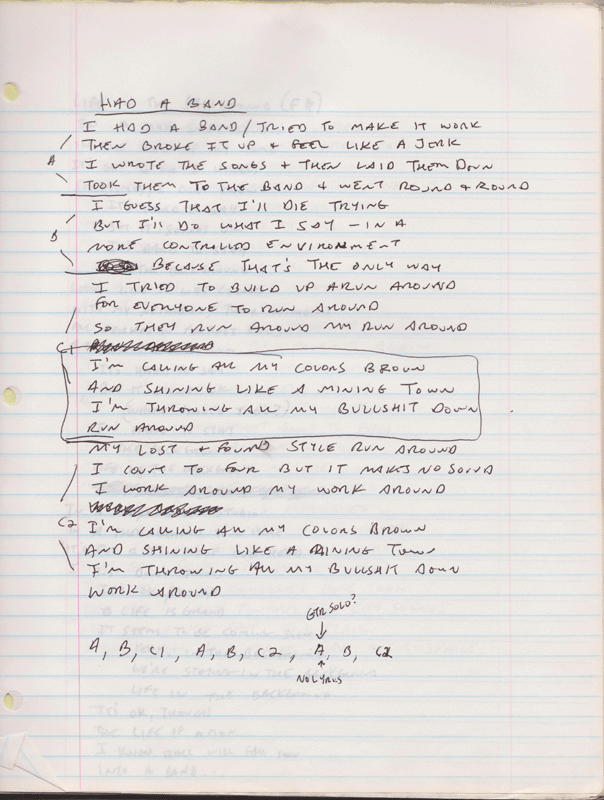 HAD A BAND
I HAD A BAND / TRIED TO MAKE IT WORK
THEN BROKE IT UP + FEEL LIKE A JERK
A
I WROTE THE SONGS + THEN LAID THEM DOWN
TOOK THEM TO THE BAND + WENT ROUND + ROUND
I GUESS THAT I'LL DIE TRYING
B
BUT I'LL DO WHAT I SAY — IN A
MORE CONTROLLED ENVIRONMENT
BECAUSE THAT'S THE ONLY WAY
I TRIED TO BUILD UP A RUN AROUND
FOR EVERYONE TO RUN AROUND
SO THEY RUN AROUND MY RUN AROUND
C1
I'M CALLING ALL MY COLORS BROWN
AND SHINING LIKE A MINING TOWN
I'M THROWING ALL MY BULLSHIT DOWN
RUN AROUND
MY LOST + FOUND STYLE RUN AROUND
I COUNT TO FOUR BUT IT MAKES NO SOUND
I WORK AROUND MY WORK AROUND
C2
I'M CALLING ALL MY COLORS BROWN
AND SHINING LIKE A MINING TOWN
I'M THROWING ALL MY BULLSHIT DOWN
WORK AROUND
GTR SOLO?
A, B, C1, A, B, C2, A, B, C2
NO LYRICS
LIFE IN THE BACKGROUND
IT'S OK, THOUGH
INTO A BAND...